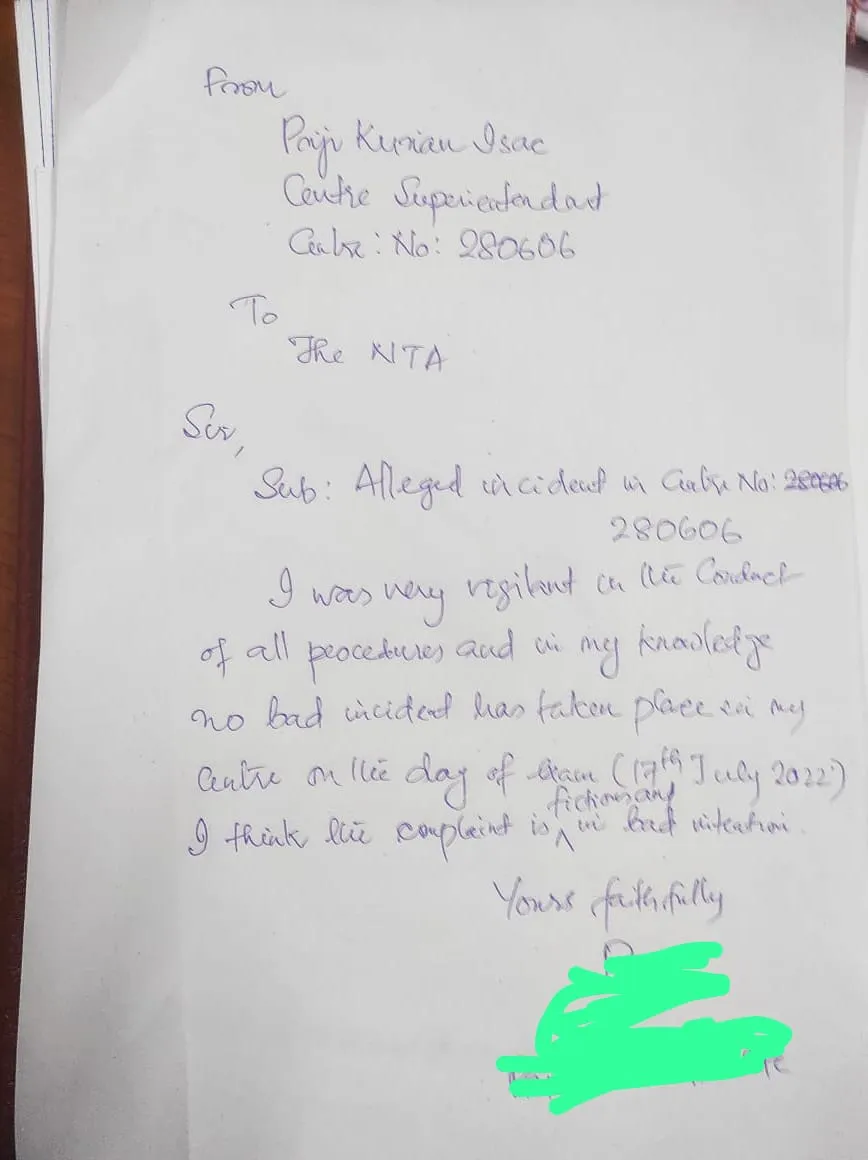 From
Priji Kurian Isac
Centre Superientendant
Centre: No: 280606
To
The NTA
Sir,
Sub: Alleged incident in Centre No: 280606
280606
I was very vigilant in the Conduct
of all procedures and in my knowledge
no bad incident has taken place in my
Centre on the day of Exam (17th July 2022)
fictious and
I think the complaint is ^ in bad intention.
Yours faithfully